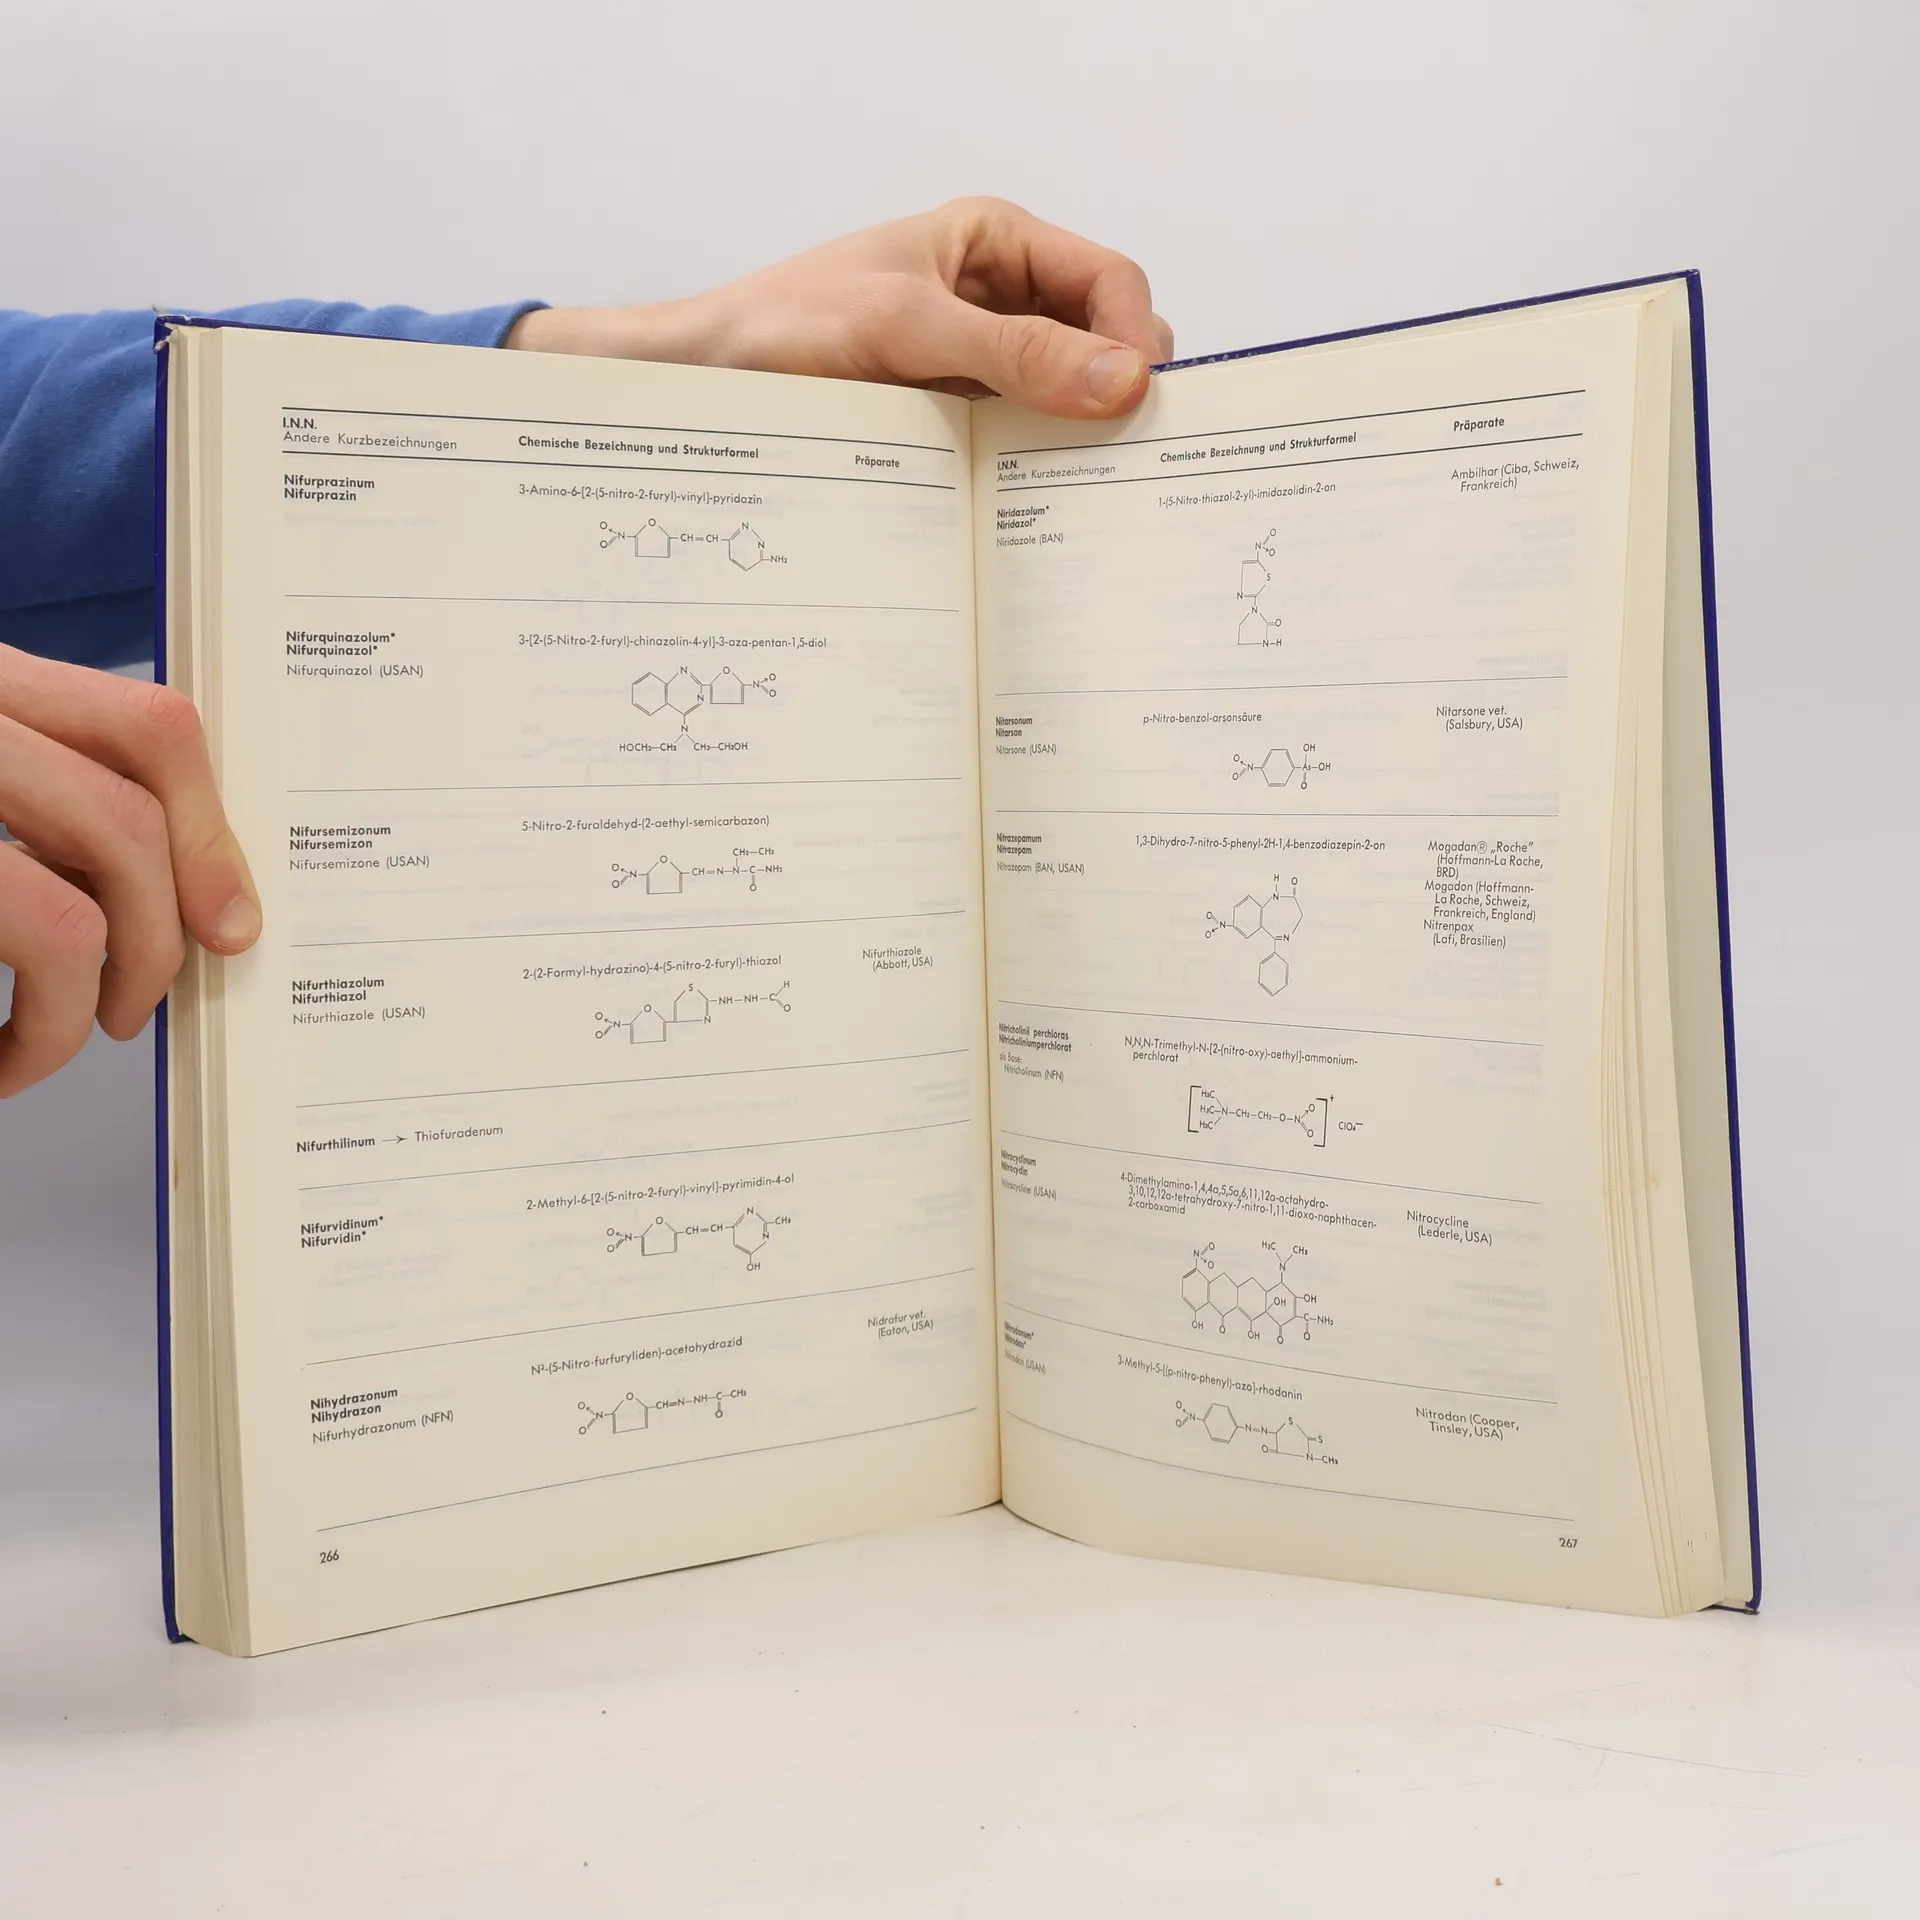 I.N.N.
Andere Kurzbezeichnungen
Chemische Bezeichnung und Strukturformel
Präparate
Nifurprazinum
Nifurprazin
3-Amino-6-[2-(5-nitro-2-furyl)-vinyl]-pyridazin
Nifurquinazolum*
Nifurquinazol*
Nifurquinazol (USAN)
3-[2-(5-Nitro-2-furyl)-chinazolin-4-yl]-3-aza-pentan-1,5-diol
HOCH₂—CH₂ CH₂—CH₂OH
Nifursemizonum
Nifursemizon
Nifursemizone (USAN)
5-Nitro-2-furaldehyd-(2-aethyl-semicarbazon)
Nifurthiazolum
Nifurthiazol
Nifurthiazole (USAN)
2-(2-Formyl-hydrazino)-4-(5-nitro-2-furyl)-thiazol
Nifurthiazole
(Abbott, USA)
Nifurthilinum → Thiofuradenum
Nifurvidinum*
Nifurvidin*
2-Methyl-6-[2-(5-nitro-2-furyl)-vinyl]-pyrimidin-4-ol
Nihydrazonum
Nihydrazon
Nifurhydrazonum (NFN)
N²-(5-Nitro-furfuryliden)-acetohydrazid
Nidrafur vet.
(Eaton, USA)
266
I.N.N.
Andere Kurzbezeichnungen
Chemische Bezeichnung und Strukturformel
Präparate
Niridazolum*
Niridazol*
Niridazole (BAN)
1-(5-Nitro-thiazol-2-yl)-imidazolidin-2-on
Ambilhar (Ciba, Schweiz,
Frankreich)
Nitarsonum
Nitarson
Nitarsone (USAN)
p-Nitro-benzol-arsonsäure
Nitarsone vet.
(Salsbury, USA)
Nitrazepamum
Nitrazepam
Nitrazepam (BAN, USAN)
1,3-Dihydro-7-nitro-5-phenyl-2H-1,4-benzodiazepin-2-on
Mogadan® „Roche“
(Hoffmann-La Roche,
BRD)
Mogadon (Hoffmann-
La Roche, Schweiz,
Frankreich, England)
Nitrenpax
(Lafi, Brasilien)
Nitricholinii perchloras
Nitricholiniumperchlorat
als Base:
Nitricholinum (NFN)
N,N,N-Trimethyl-N-[2-(nitro-oxy)-aethyl]-ammonium-
perchlorat
Nitrocyclinum
Nitrocyclin
Nitrocycline (USAN)
4-Dimethylamino-1,4,4a,5,5a,6,11,12a-octahydro-
3,10,12,12a-tetrahydroxy-7-nitro-1,11-dioxo-naphthacen-
2-carboxamid
Nitrocycline
(Lederle, USA)
Nitrodanum*
Nitrodan*
Nitrodan (USAN)
3-Methyl-5-[(p-nitro-phenyl)-azo]-rhodanin
Nitrodan (Cooper,
Tinsley, USA)
267